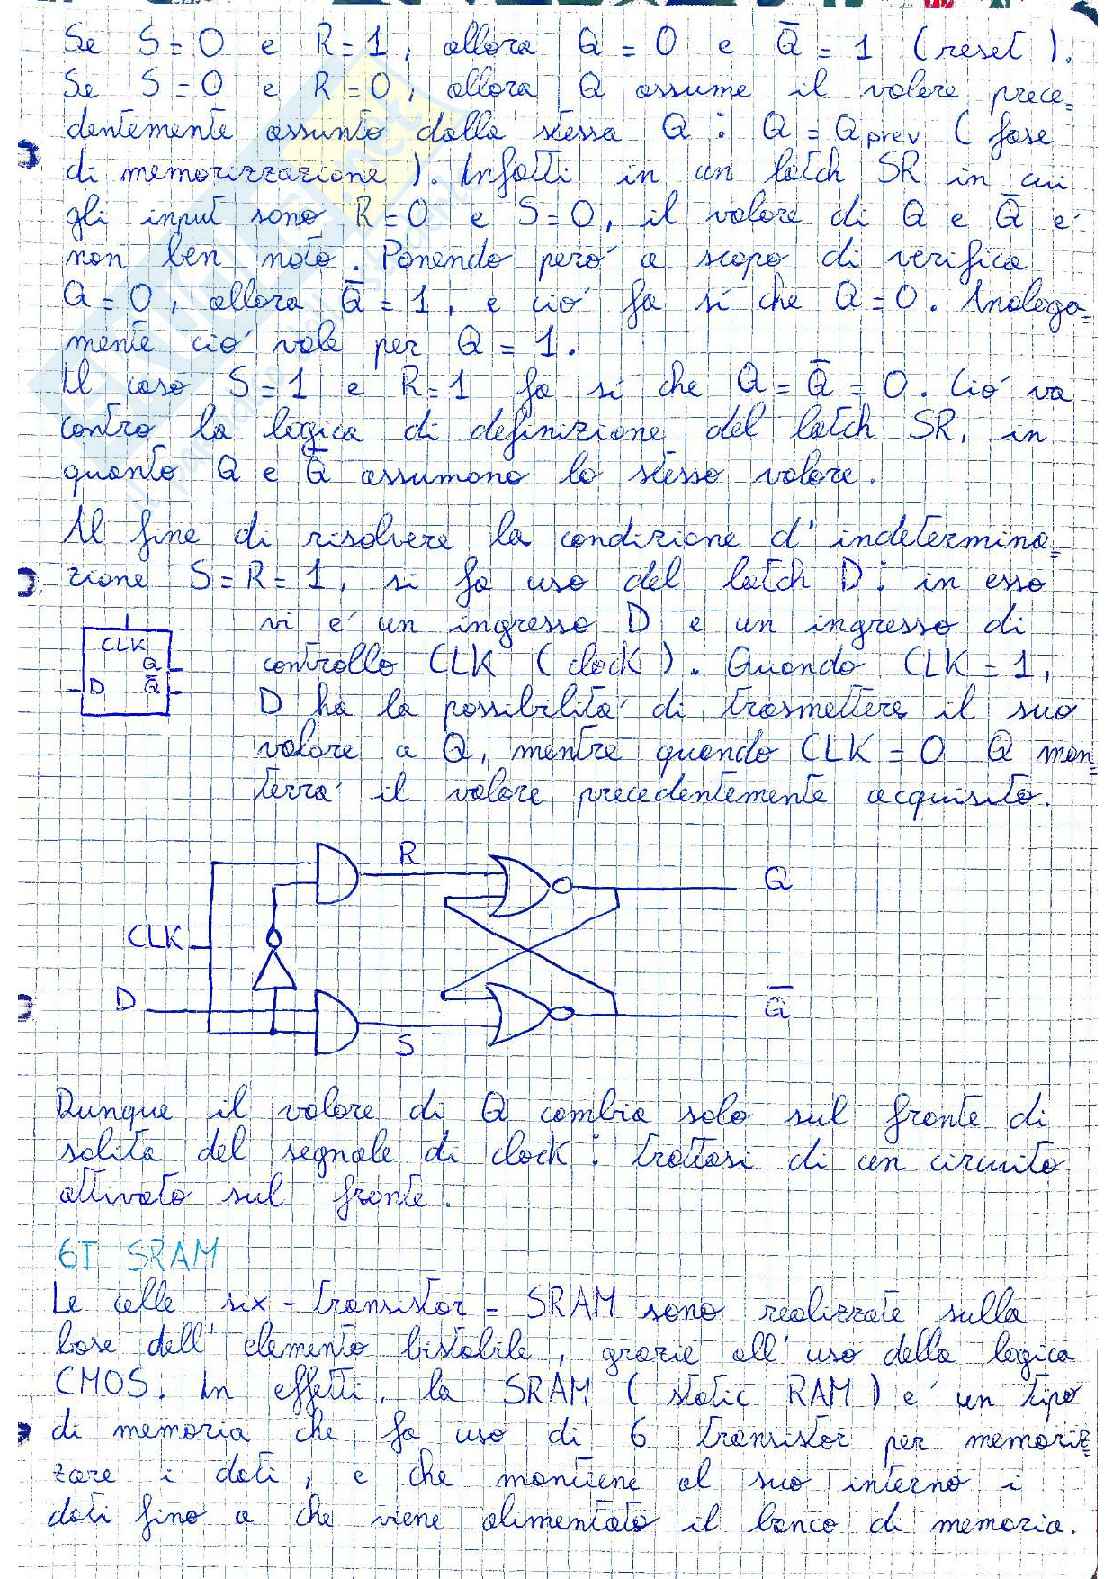 Se S = 0 e R = 1, allora Q = 0 e Q̄ = 1 (reset).
Se S = 0 e R = 0, allora Q assume il valore prece=
dentemente assunto dalla stessa Q : Q = Qprev (fase
di memorizzazione). Infatti in un latch SR in cui
gli input sono R = 0 e S = 0, il valore di Q e Q̄ e'
non ben noto. Ponendo però a scopo di verifica
Q = 0, allora Q̄ = 1, e ciò fa sì che Q = 0. Analoga=
mente ciò vale per Q = 1.
Il caso S = 1 e R = 1 fa sì che Q = Q̄ = 0. Ciò va
contro la logica di definizione del latch SR, in
quanto Q e Q̄ assumono lo stesso valore.
Al fine di risolvere la condizione d'indetermina=
zione S = R = 1, si fa uso del latch D : in esso
vi e' un ingresso D e un ingresso di
controllo CLK (clock). Quando CLK = 1,
D ha la possibilità di trasmettere il suo
valore a Q, mentre quando CLK = 0 Q man=
terrà il valore precedentemente acquisito.
CLK
Q
D Q̄
R
Q
CLK
D
Q̄
S
Dunque il valore di Q cambia solo sul fronte di
salita del segnale di clock : trattasi di un circuito
attivato sul fronte.
6T SRAM
Le celle six - transistor - SRAM sono realizzate sulla
base dell'elemento bistabile, grazie all'uso della logica
CMOS. In effetti, la SRAM (static RAM) e' un tipo
di memoria che fa uso di 6 transistor per memoriz=
zare i dati, e che mantiene al suo interno i
dati fino a che viene alimentato il banco di memoria.